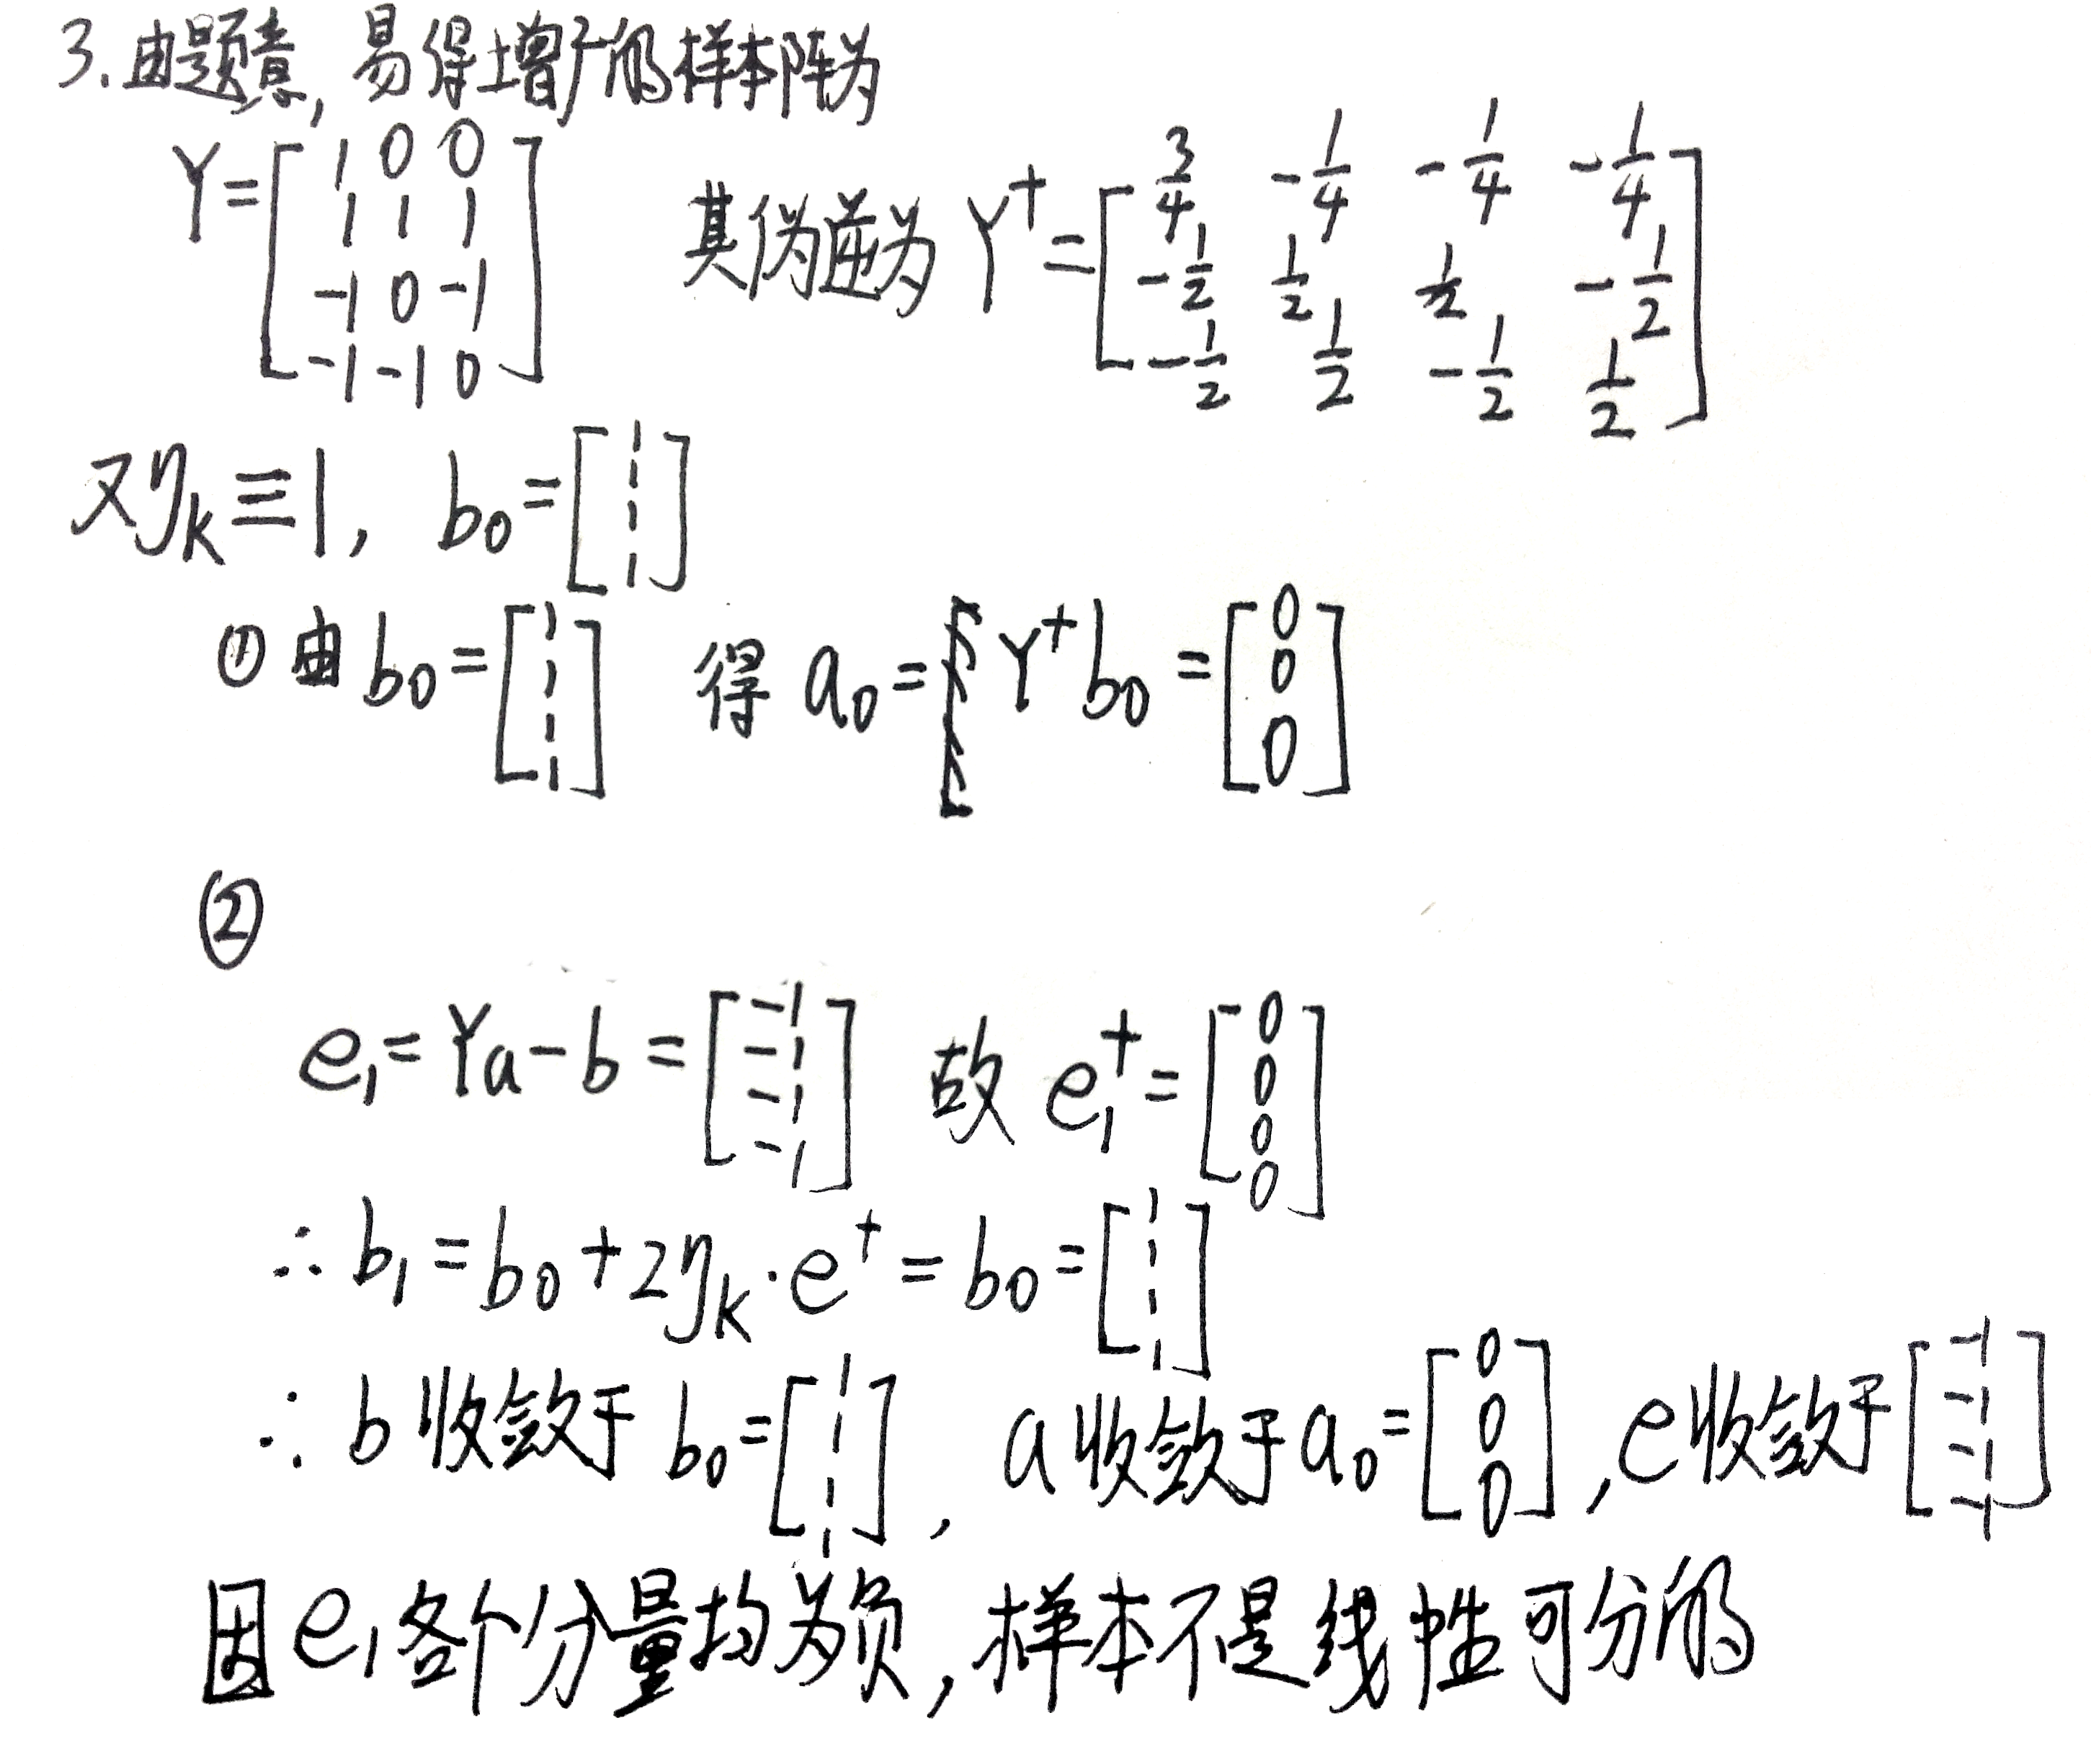 3. 由题意, 易得增广的样本阵为
Y = [1 0 0; 1 1 1; -1 0 -1; -1 -1 0] 其伪逆为 Y⁺ = [3/4 -1/4 -1/4 -1/4; -1/2 1/2 1/2 -1/2; -1/2 1/2 -1/2 1/2]
又ηk ≡ 1, b0 = [1; 1; 1; 1]
① 由 b0 = [1; 1; 1; 1] 得 a0 = Y⁺b0 = [0; 0; 0]
②
e1 = Ya - b = [-1; -1; -1; -1] 故 e1⁺ = [0; 0; 0; 0]
∴ b1 = b0 + 2ηk · e⁺ = b0 = [1; 1; 1; 1]
∴ b 收敛于 b0 = [1; 1; 1; 1], a 收敛于 a0 = [0; 0; 0], e 收敛于 [-1; -1; -1; -1]
因 e1 各个分量均为负, 样本不是线性可分的